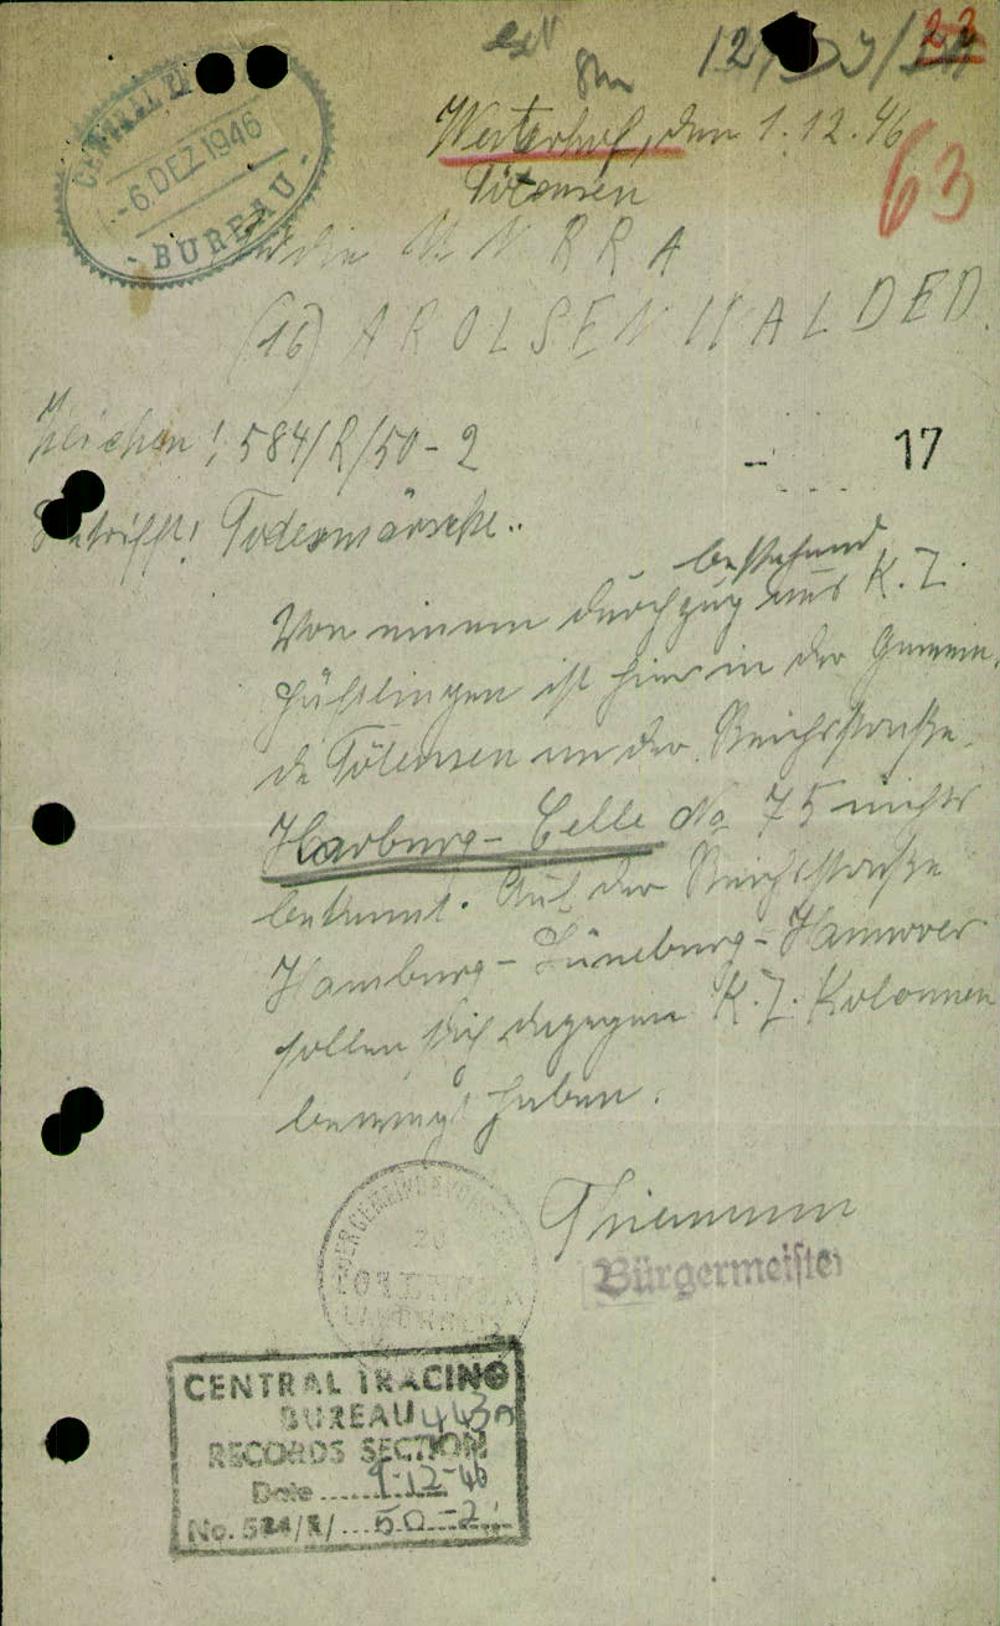 CENTRAL
-6. DEZ 1946
BUREAU
63
Westerhof, den 1.12.46
Tötensen
An die U. N. R R A
(16) A R O L S E N W A L D E D.
Zeichen! 584/R/50-2
17
Betrifft! Todesmärsche..
bestehend
Von einem Durchzug aus K.Z.
Häftlingen ist hier in der Gemein-
de Tötensen an der Reichsstraße
Harburg-Celle No 75 nichts
bekannt. Auf der Reichsstraße
Hamburg-Lüneburg-Hannover
sollen sich dagegen K.Z. Kolonnen
bewegt haben.
Thiemann
Bürgermeister
CENTRAL TRACING
BUREAU 443A
RECORDS SECTION
Date ...... 9-12-46
No. 584/R/...50-2